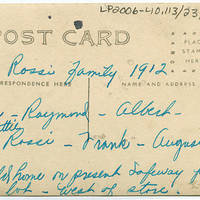 LP2006-40.113/23
POST CARD
PLAC
STAM
HER
Rossi Family 1912
CORRESPONDENCE HERE NAME AND ADDRESS
- Raymond - Albert -
Rossi - Frank - Augus
home on present Safeway
lot - west of store.